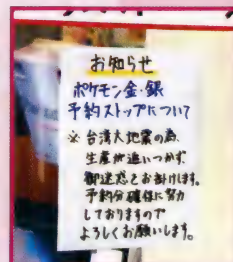 お知らせ
ポケモン金・銀
予約ストップについて
※台湾大地震の為
生産が追いつかず
御迷惑をお掛けします。
予約分確保に努力
しておりますので
よろしくお願いします。